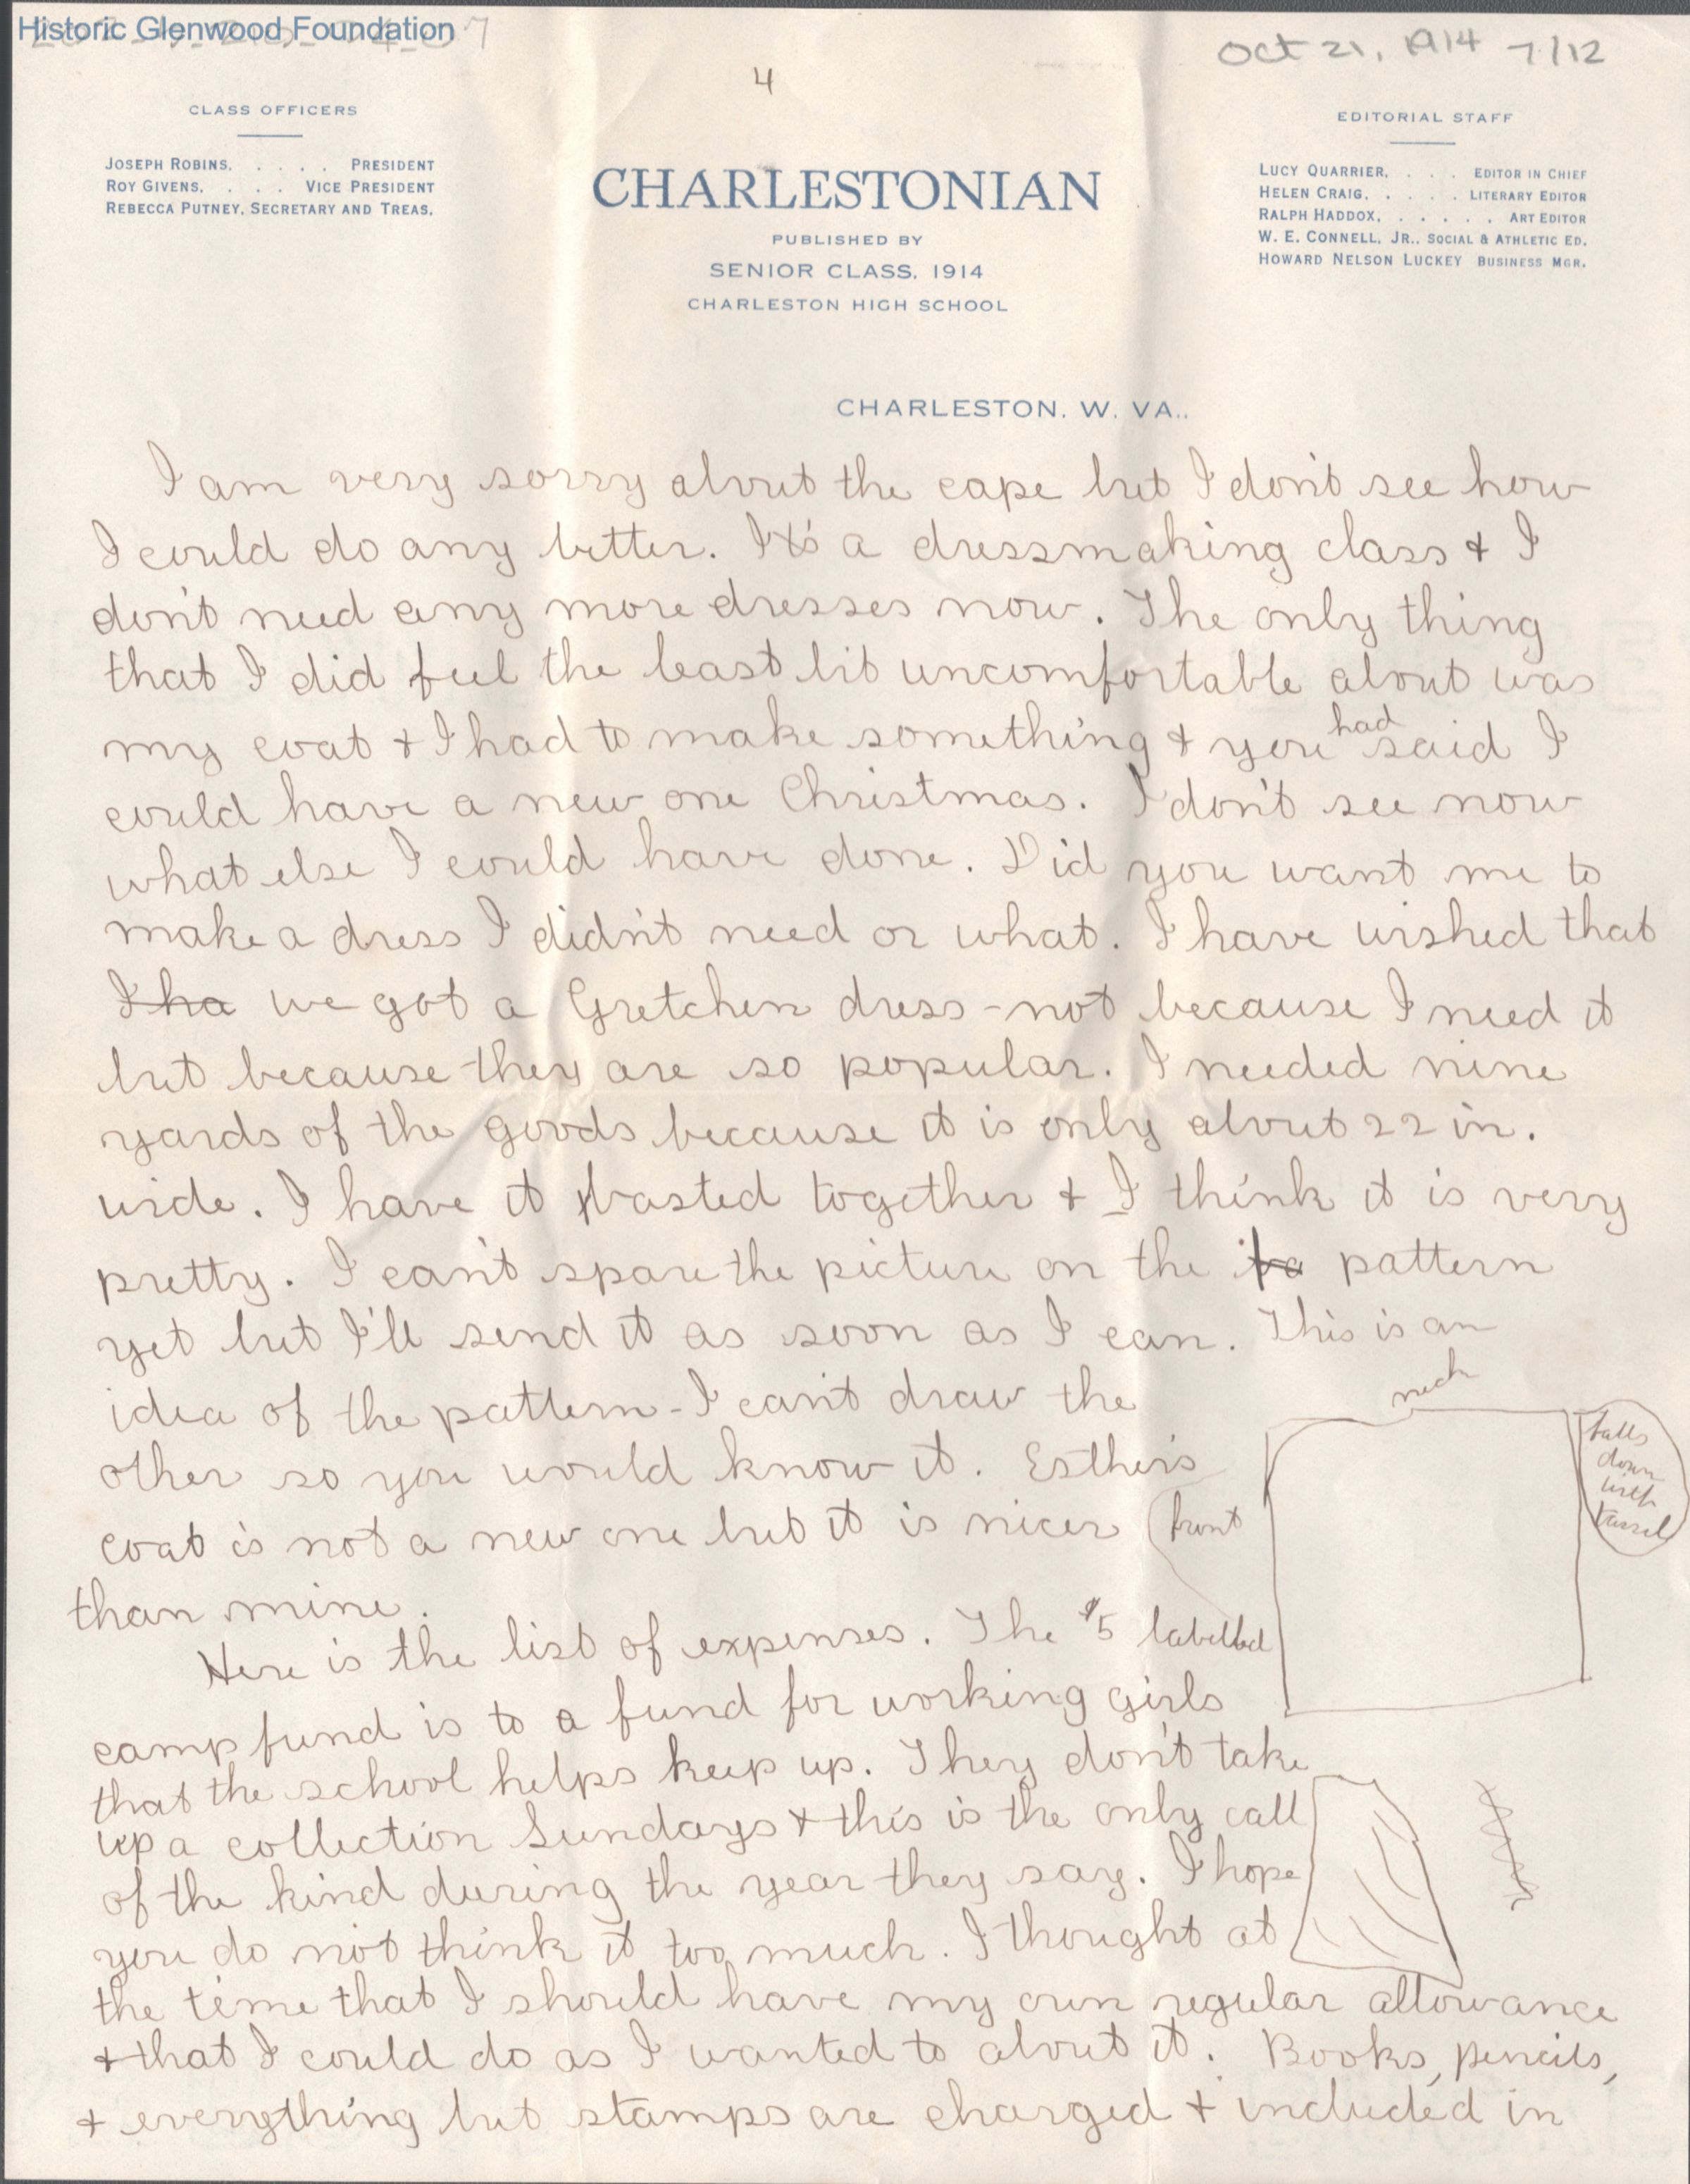 Historic Glenwood Foundation
Oct 21, 1914 7/12
4
CLASS OFFICERS
JOSEPH ROBINS. . . . . PRESIDENT
ROY GIVENS. . . . VICE PRESIDENT
REBECCA PUTNEY. SECRETARY AND TREAS.
CHARLESTONIAN
PUBLISHED BY
SENIOR CLASS. 1914
CHARLESTON HIGH SCHOOL
EDITORIAL STAFF
LUCY QUARRIER. . . . EDITOR IN CHIEF
HELEN CRAIG. . . . . LITERARY EDITOR
RALPH HADDOX. . . . . . ART EDITOR
W. E. CONNELL. JR.. SOCIAL & ATHLETIC ED.
HOWARD NELSON LUCKEY BUSINESS MGR.
CHARLESTON. W. VA..
I am very sorry about the cape but I don't see how
I could do any better. It's a dressmaking class + I
don't need any more dresses now. The only thing
that I did feel the least bit uncomfortable about was
my coat + I had to make something + you had said I
could have a new one Christmas. I don't see now
what else I could have done. Did you want me to
make a dress I didn't need or what. I have wished that
I ha we got a Gretchen dress - not because I need it
but because they are so popular. I needed nine
yards of the goods because it is only about 22 in.
wide. I have it basted together + I think it is very
pretty. I can't spare the picture on the pattern
yet but I'll send it as soon as I can. This is an
idea of the pattern - I can't draw the
other so you would know it. Esther's
coat is not a new one but it is nicer
than mine.
neck
falls
down
with
tassel
front
Here is the list of expenses. The $5 labelled
camp fund is to a fund for working girls
that the school helps keep up. They don't take
up a collection Sundays + this is the only call
of the kind during the year they say. I hope
you do not think it too much. I thought at
the time that I should have my own regular allowance
+ that I could do as I wanted to about it. Books, pencils,
+ everything but stamps are charged + included in